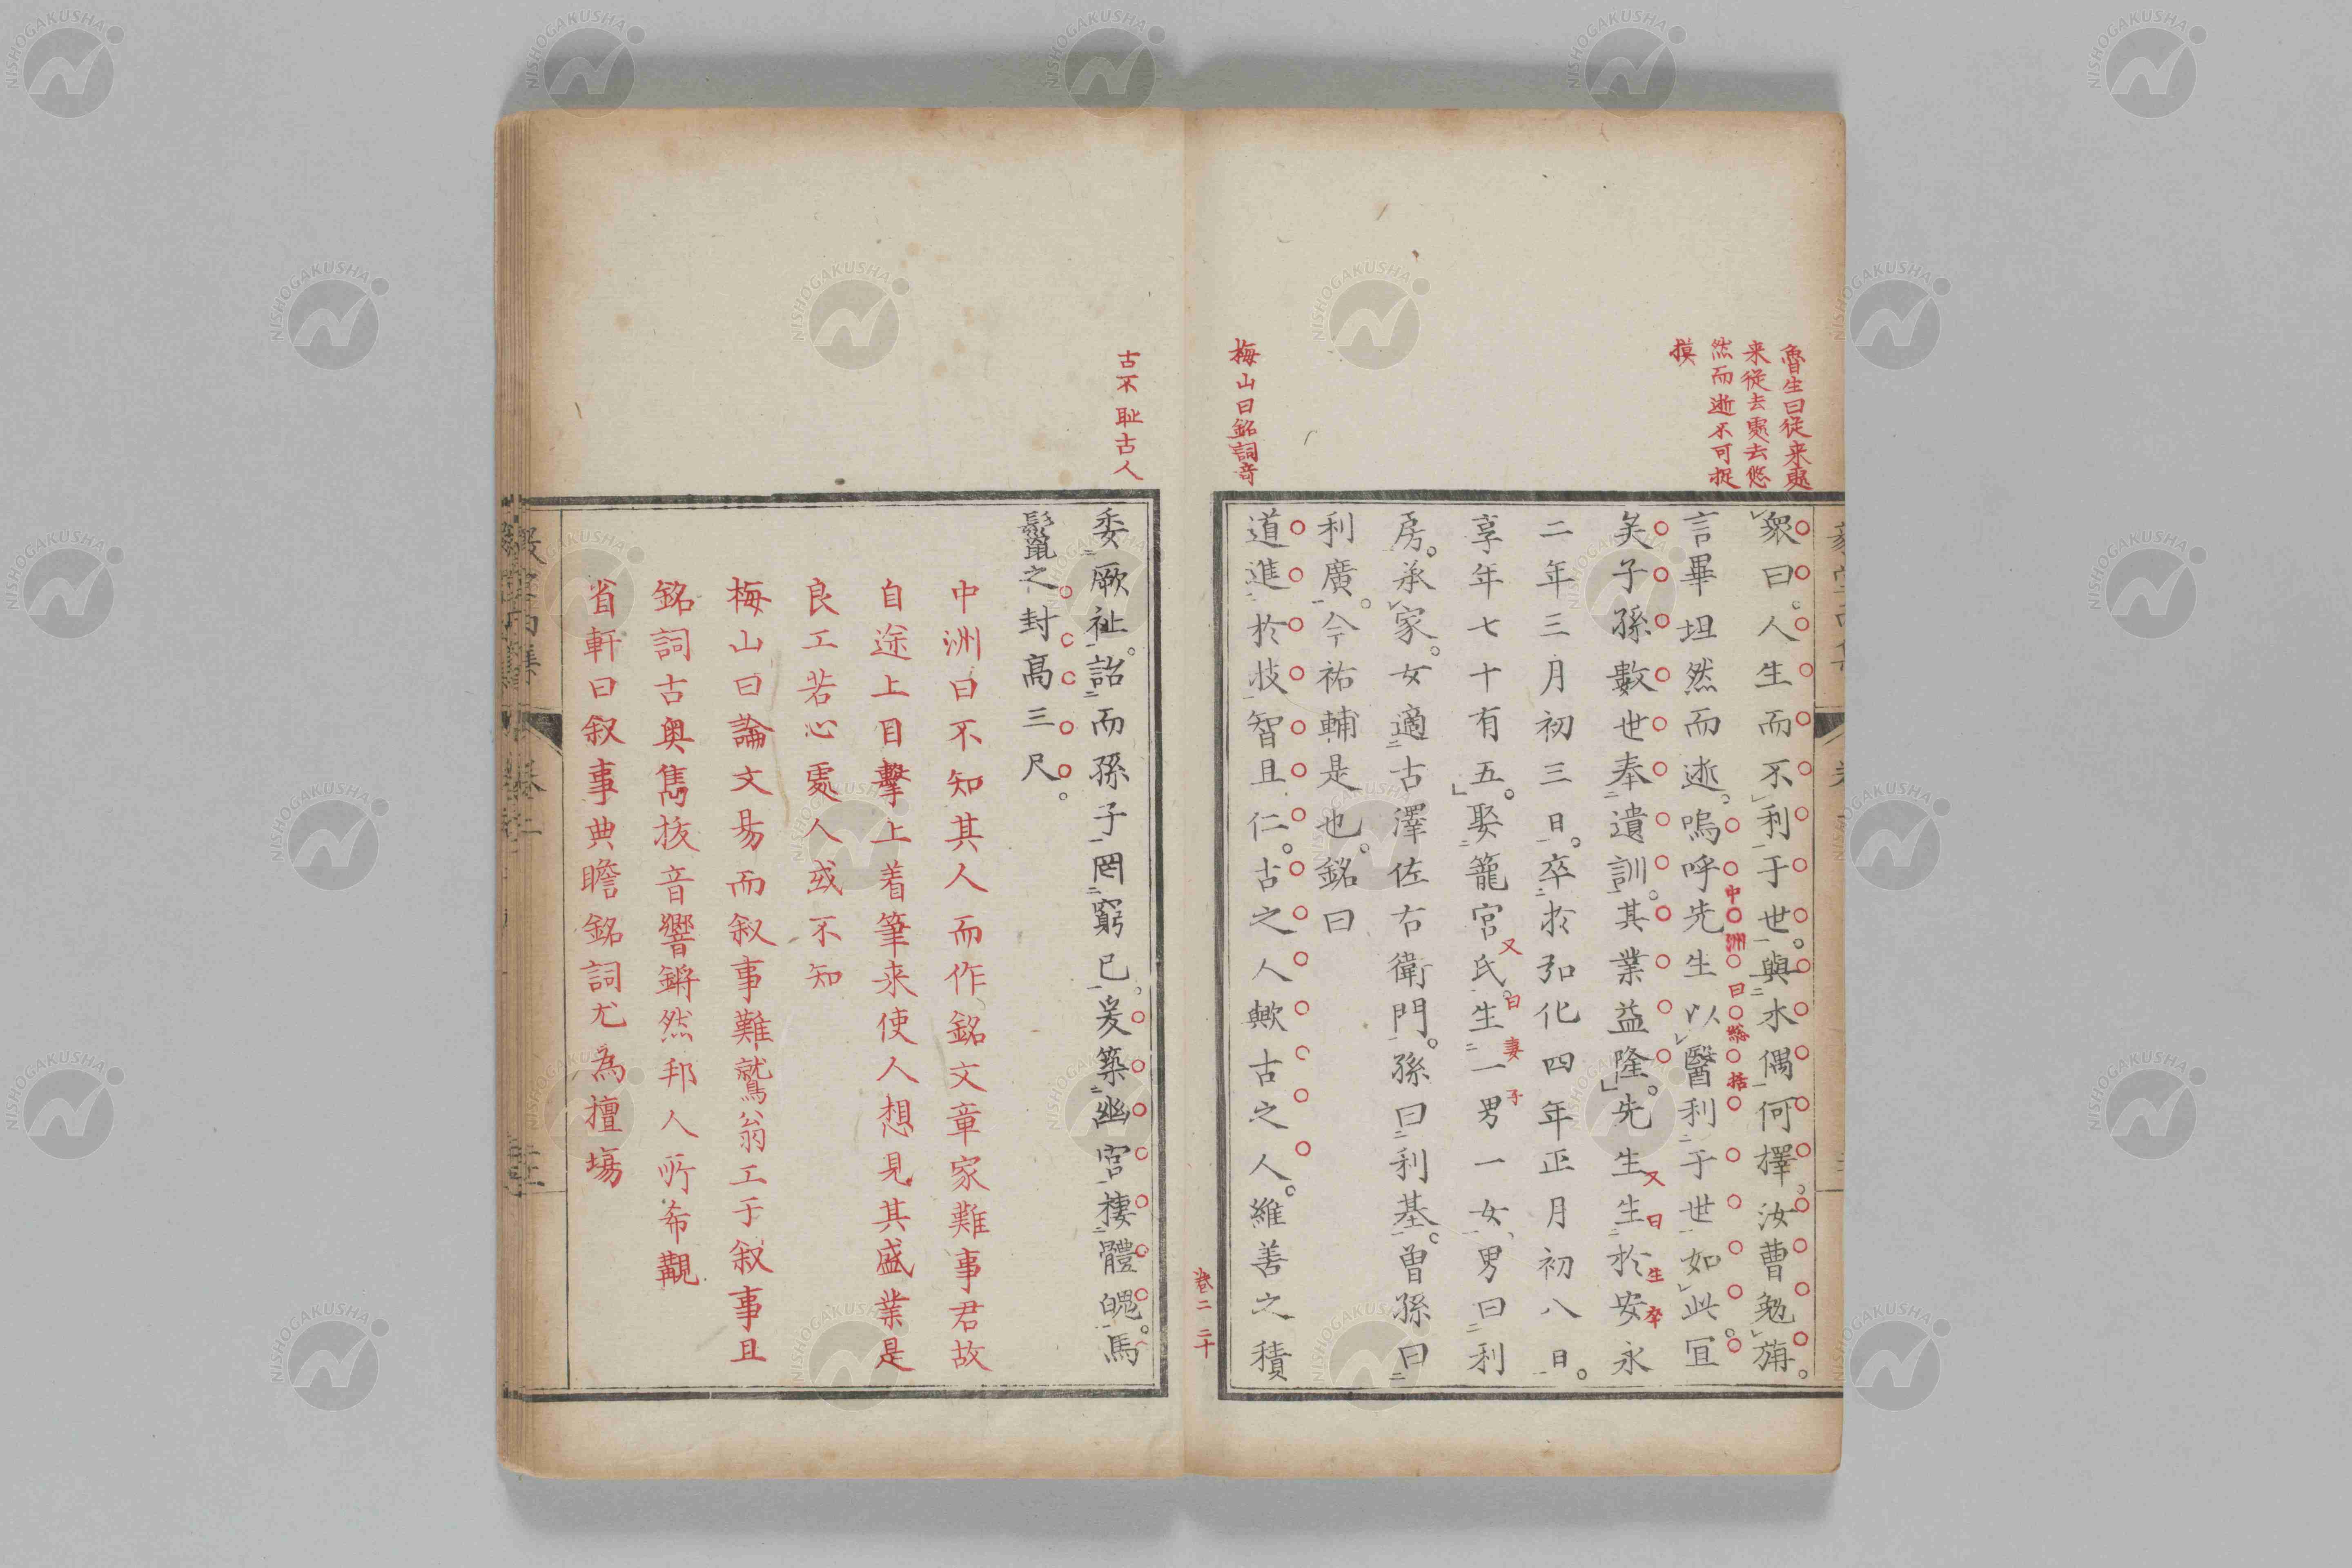 魯生曰従来䖏
来従去䖏去悠
然而逝不可捉
摸
衆曰人生而不利于世與木偶何擇汝曹勉旃
言畢坦然而逝嗚呼先生以醫利于世如此宜
中洲曰総括
矣子孫數世奉遺訓其業益隆先生生於安永
又曰生卒
二年三月初三日卒於弘化四年正月初八日
享年七十有五娶籠宮氏生一男一女男曰利
又曰妻子
房承家女適古澤佐右衛門孫曰利基曽孫曰
利廣今祐輔是也銘曰
梅山曰銘詞竒
道進於技智且仁古之人歟古之人維善之積
卷二 二十
古不耻古人
委厥祉詒而孫子罔窮已爰築幽宮棲體魄馬
鬣之封髙三尺
中洲曰不知其人而作銘文章家難事君故
自途上目擊上着筆来使人想見其盛業是
良工若心䖏人或不知
梅山曰論文易而叙事難鷲翁工于叙事且
銘詞古奥雋抜音響鏘然邦人所希覯
省軒曰叙事典瞻銘詞尤為擅塲
NISHOGAKUSHA